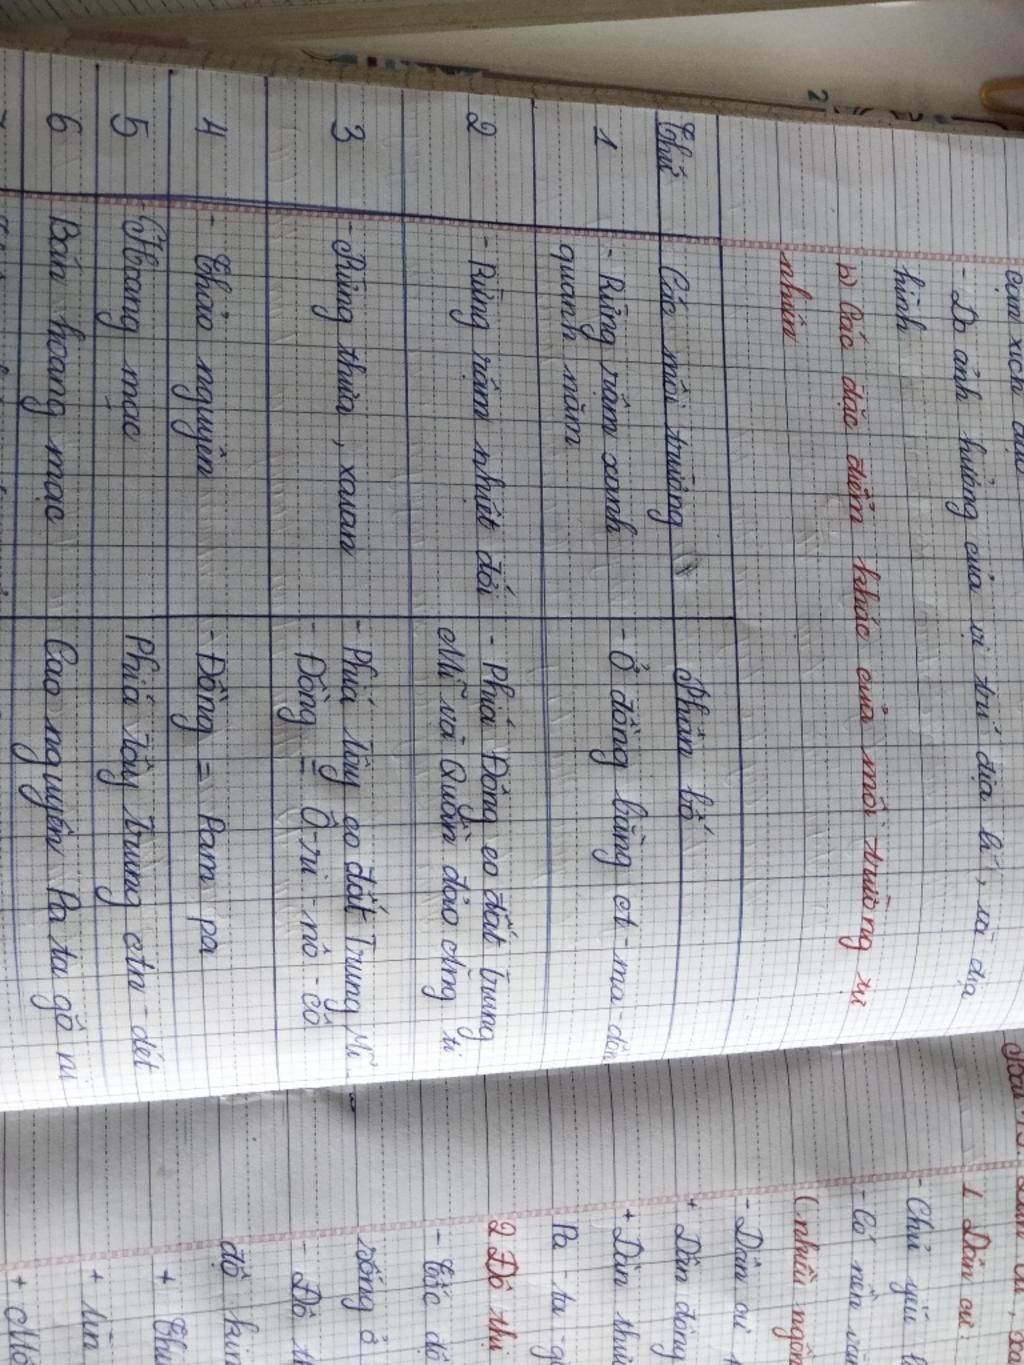 - Do ảnh hưởng của vị trí địa lí, và địa
hình
b) Các đặc điểm khác của môi trường tự
nhiên
Thứ Các môi trường Phân bố
1 - Rừng rậm xanh quanh năm - Ở đồng bằng A-ma-dôn
2 - Rừng rậm nhiệt đới - Phía Đông eo đất Trung
Mĩ và Quần đảo Ăng ti
3 - Rừng thưa, xavan - Phía tây eo đất Trung Mĩ
- Đồng = Ô-ri-nô-cô
4 - Thảo nguyên - Đồng = Pam pa
5 - Hoang mạc Phía tây Trung An-dét
6 Bán hoang mạc Cao nguyên Pa ta gô ni
1 Dân cư:
- Chủ yếu
- Có nền
(nhiều
- Dân cư
+ Dân đông
+ Dân thưa
Pa-ta-g
2 Đô thị
- Tốc độ
- Đô th
độ
+
+